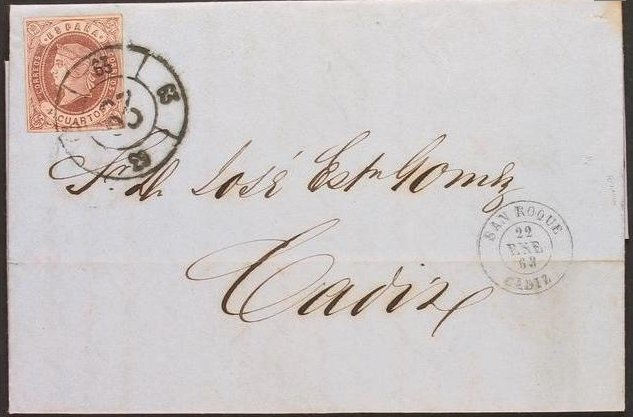 ESPAÑA
CORREOS
4 CUARTOS
63
63
63
Sr. Dn. José Estn. Gomez
Cadiz
SAN ROQUE
22
ENE
63
CADIZ